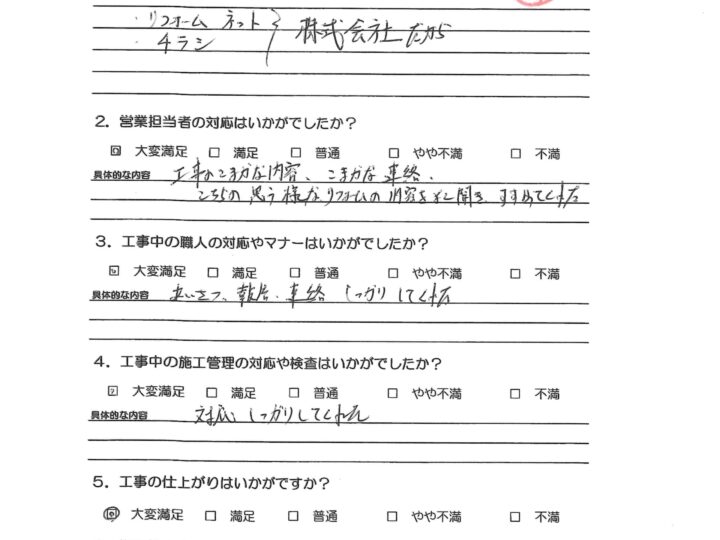 ・リフォーム ネット
・チラシ
株式会社だから
2. 営業担当者の対応はいかがでしたか?
□ 大変満足 □ 満足 □ 普通 □ やや不満 □ 不満
具体的な内容 工事のこまかな内容、こまかな連絡、
こちらの思う様なリフォームの内容をよく聞き、すすめてくれた
3. 工事中の職人の対応やマナーはいかがでしたか?
□ 大変満足 □ 満足 □ 普通 □ やや不満 □ 不満
具体的な内容 あいさつ、報告、連絡 しっかりしてくれた
4. 工事中の施工管理の対応や検査はいかがでしたか?
□ 大変満足 □ 満足 □ 普通 □ やや不満 □ 不満
具体的な内容 対応、しっかりしてくれた
5. 工事の仕上がりはいかがですか?
□ 大変満足 □ 満足 □ 普通 □ やや不満 □ 不満